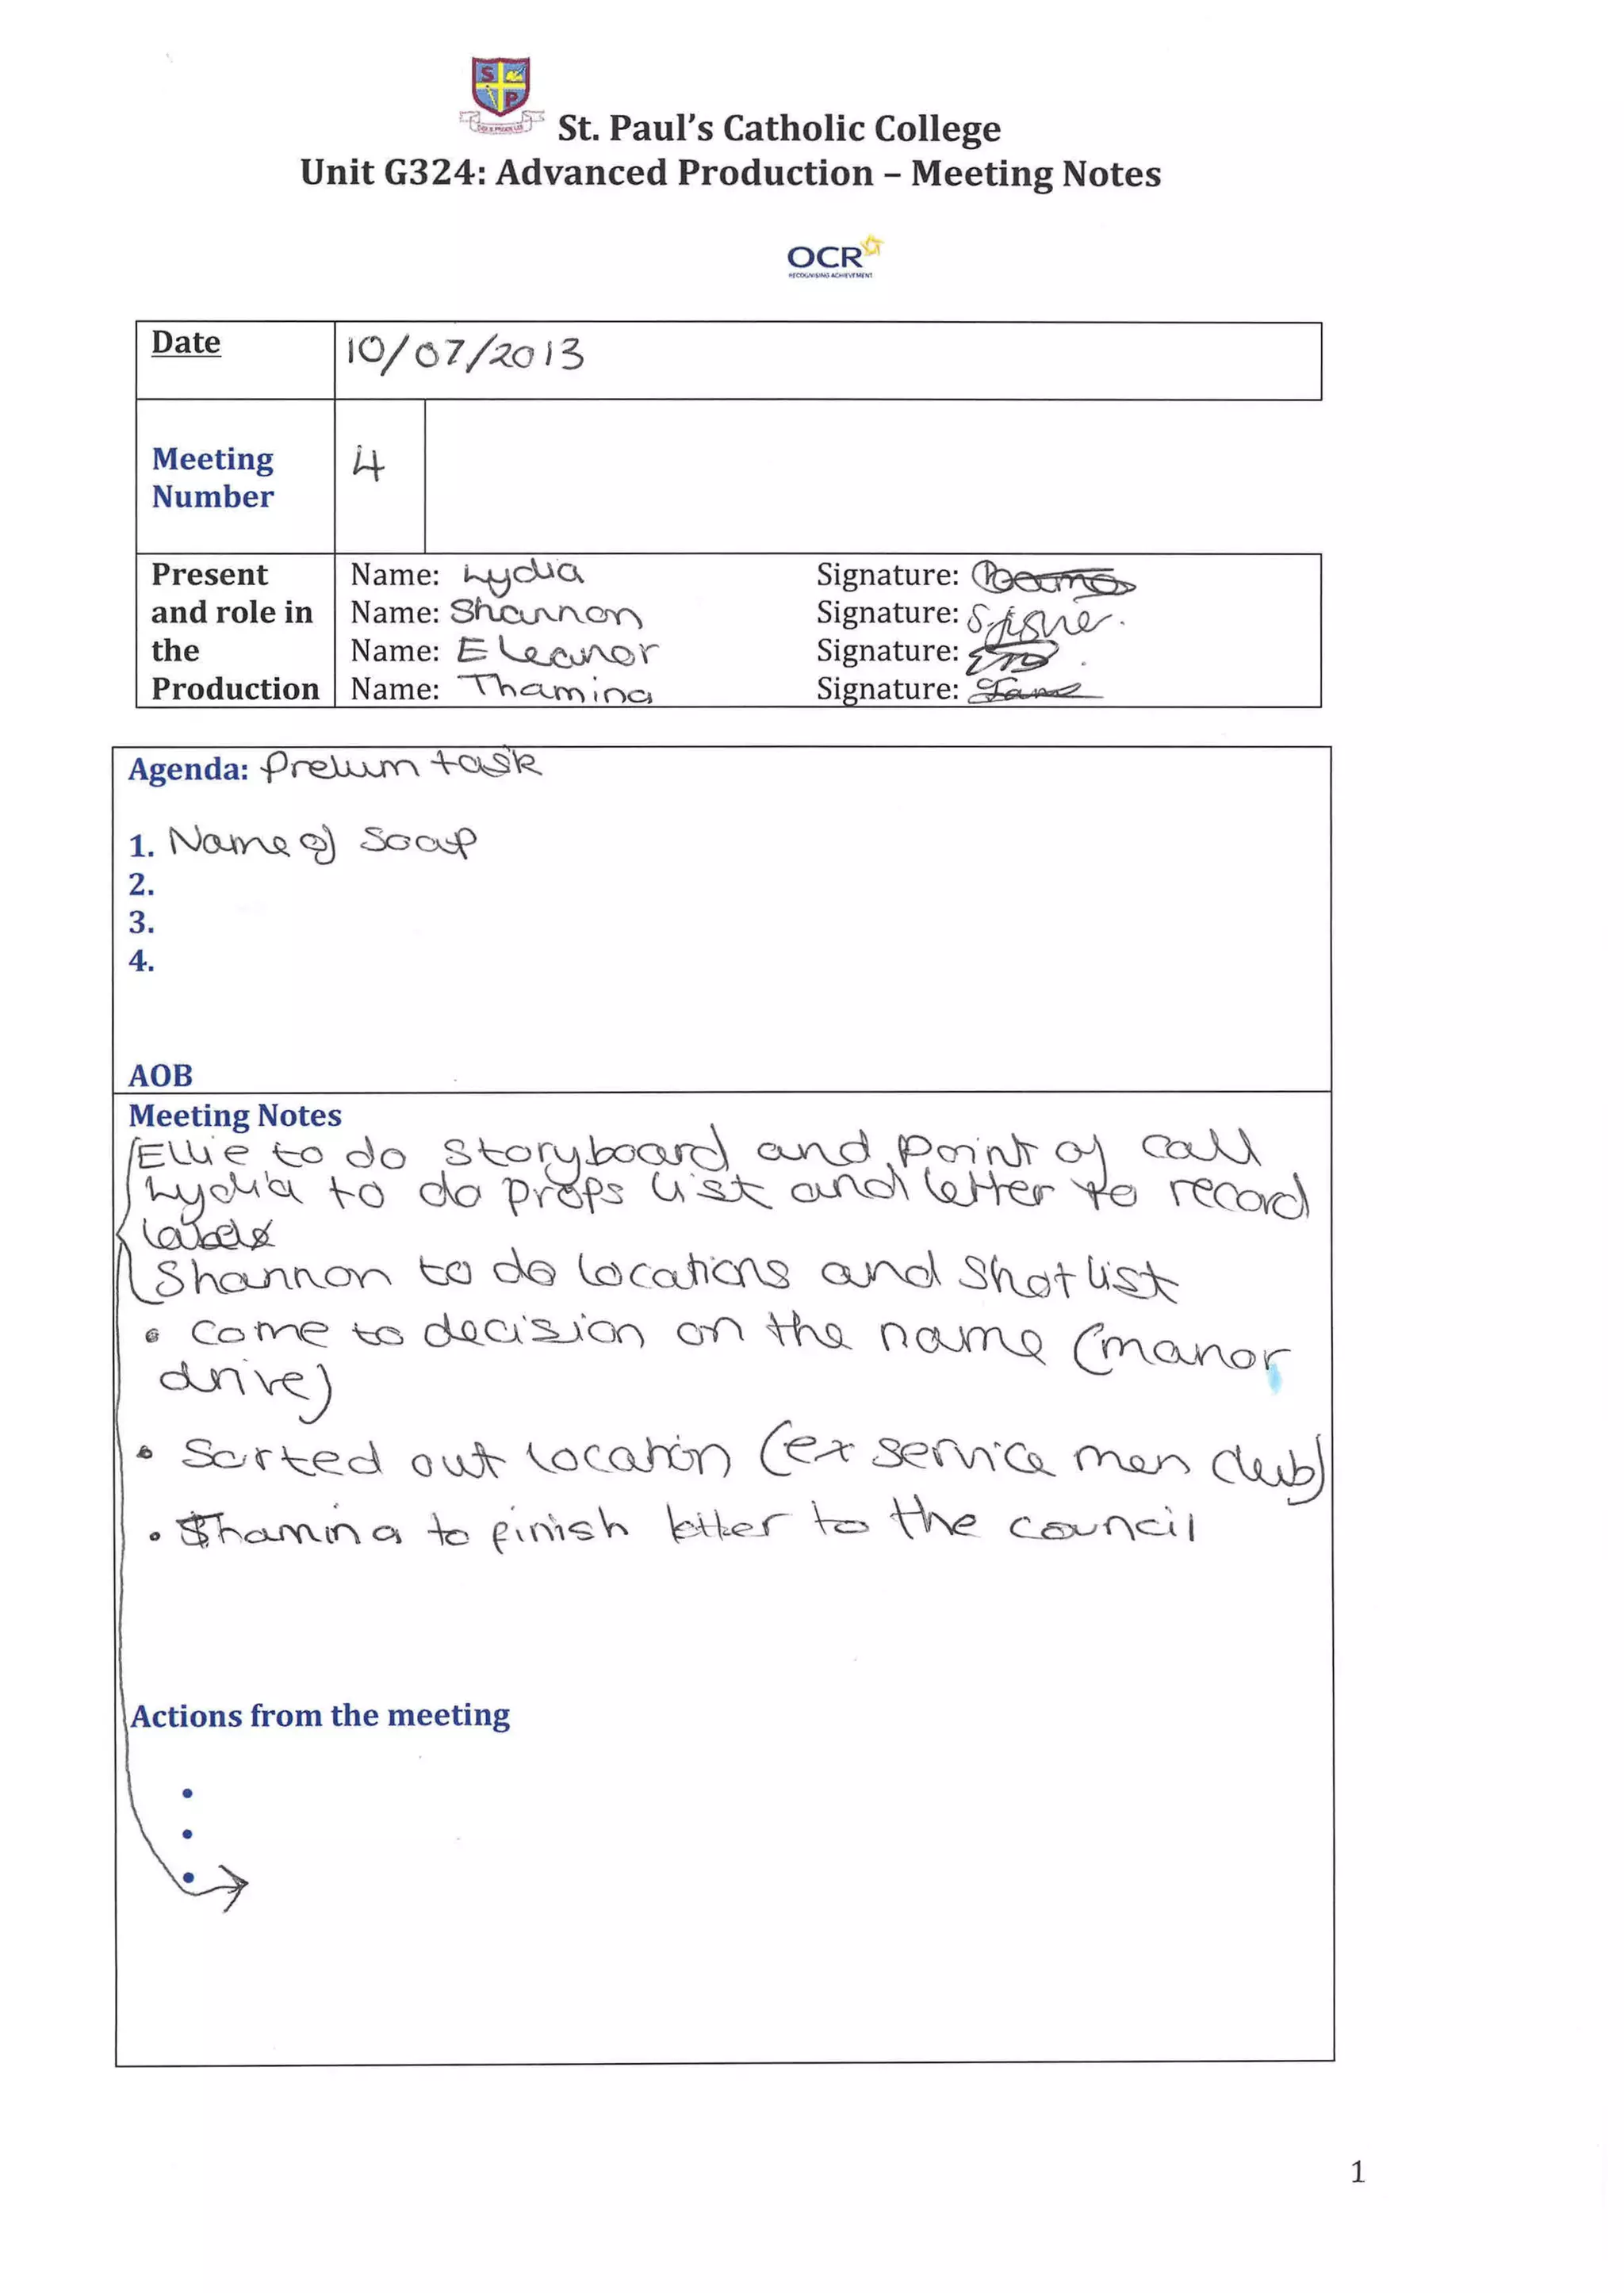 S P
St. Paul's Catholic College
Unit G324: Advanced Production – Meeting Notes
OCR
RECOGNISING ACHIEVEMENT
Date 10/07/2013
Meeting Number 4
Present and role in the Production
Name: Lydia Signature:
Name: Shannon Signature:
Name: Eleanor Signature:
Name: Thamina Signature:
Agenda: Prelim task
1. Name of Soap
2.
3.
4.
AOB
Meeting Notes
Ellie to do Storyboard and point of call
Lydia to do props list and letter to record
labels
Shannon to do locations and shot list
• Come to decision on the name (manor
drive)
• Sorted out location (ex service men club)
• Thamina to finish letter to the council
Actions from the meeting
•
•
•
1